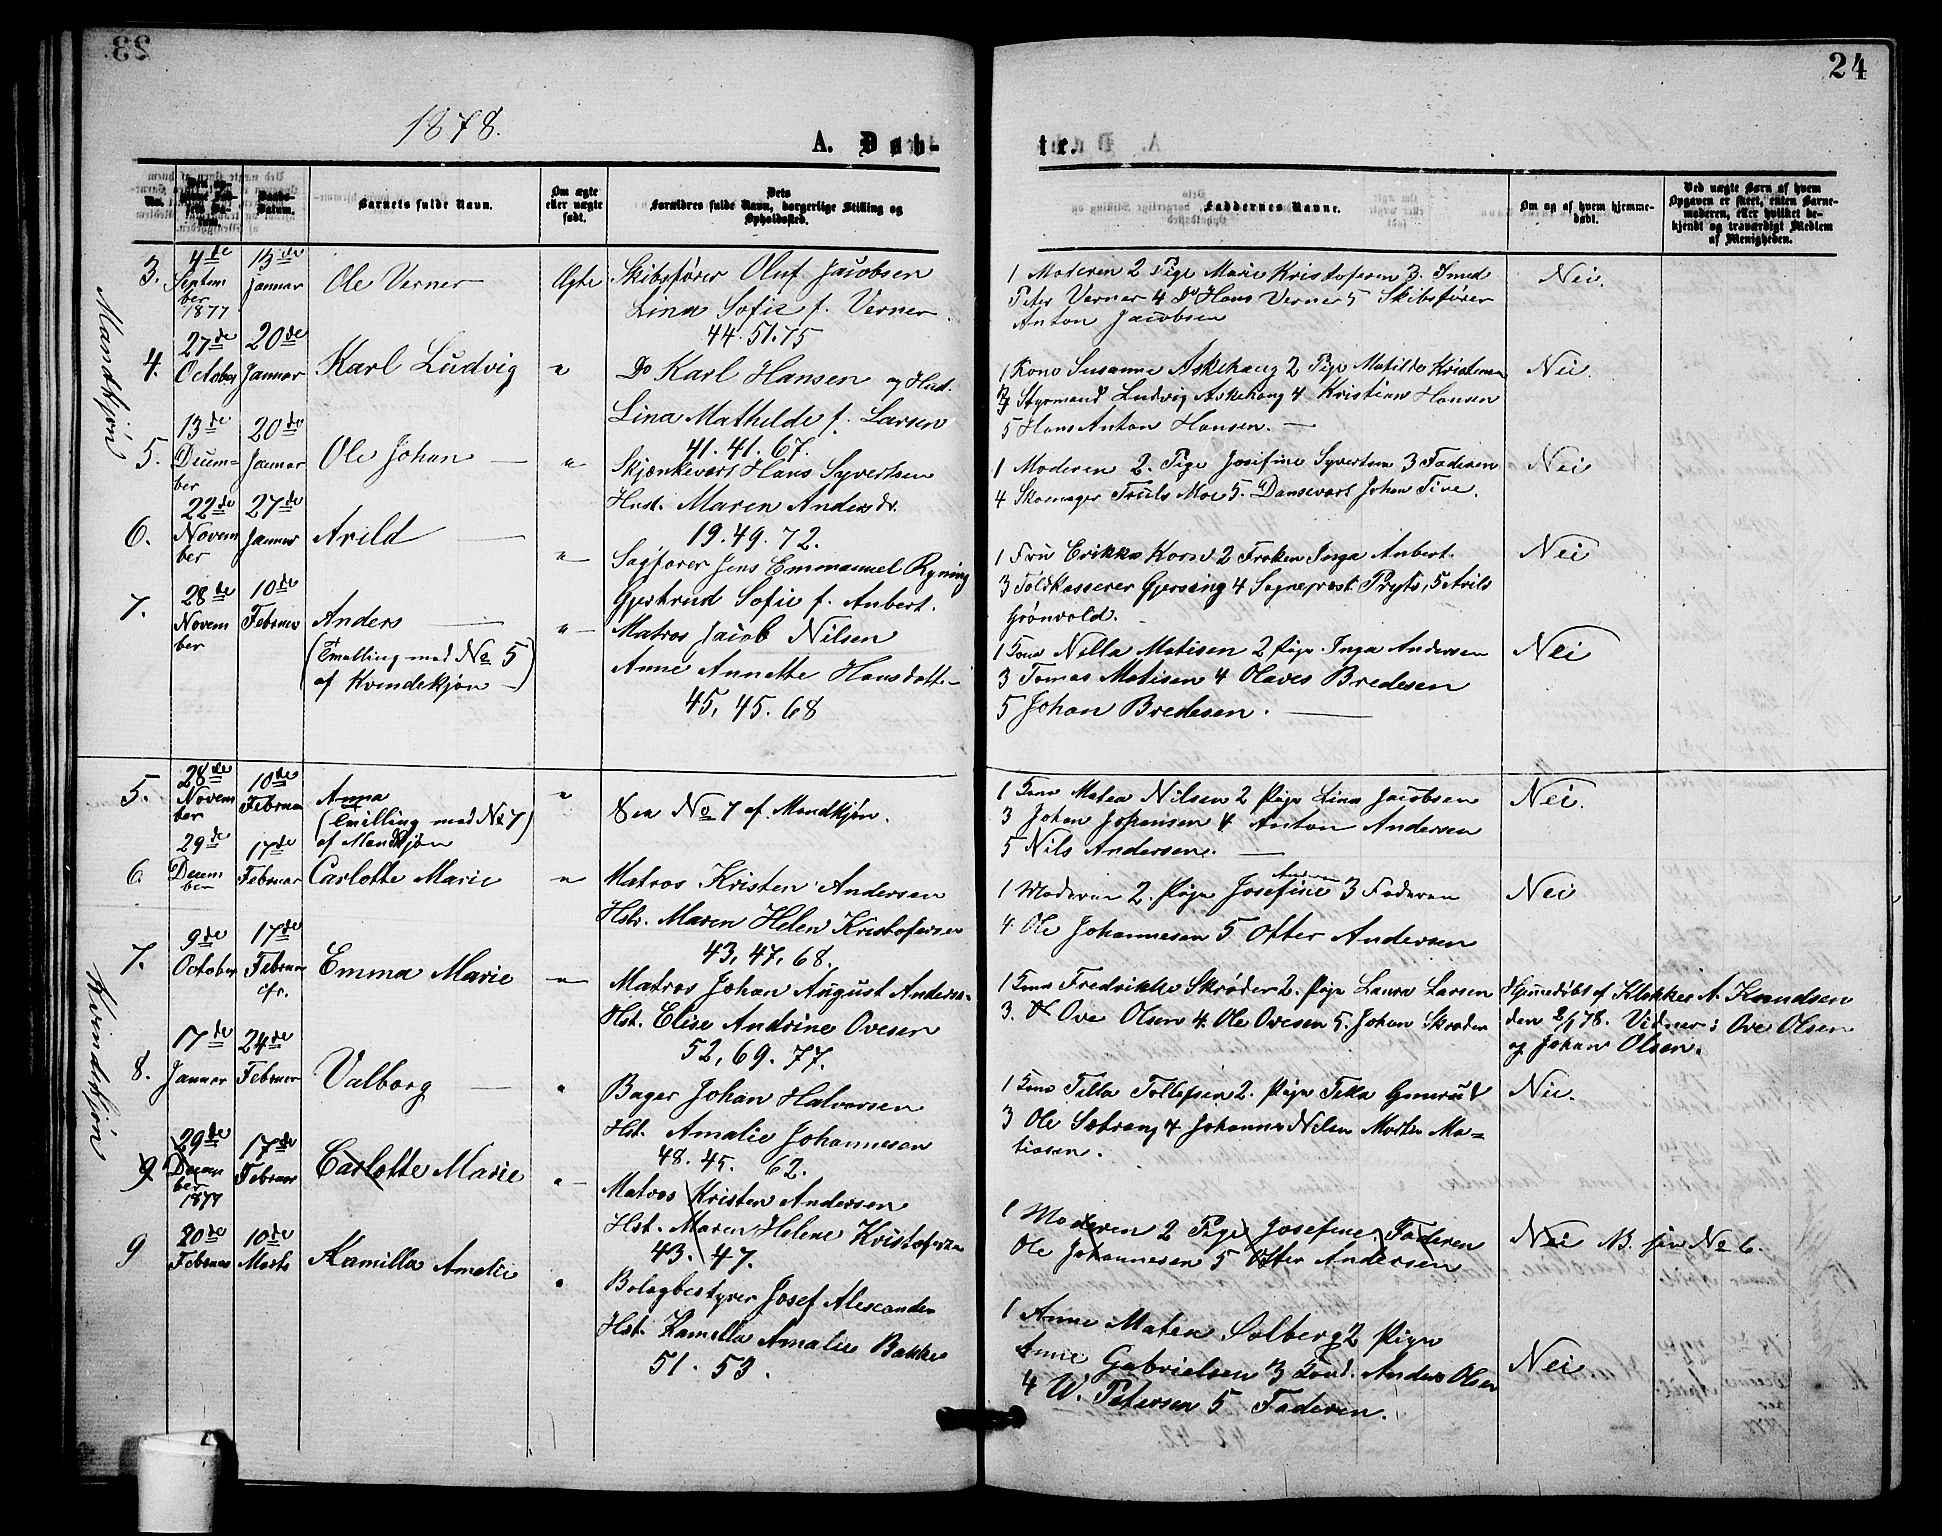 23
24
1878.
A. Døb-
te.
No.
Daabs-
Datum.
Barnets fulde Navn.
Om ægte
eller uægte
født.
Dets
Forældres fulde Navn, borgerlige Stilling og
Opholdssted.
Faddernes Navne.
Om og af hvem hjemme-
døbt.
Ved uægte Børn af hvem
Opgaven er skeet, enten Barne-
moderen, eller hvilket be-
kjendt og troværdigt Medlem
af Menigheden.
Mandkjøn
3. 4de Septem
ber
1877
13de Januar
Ole Verner
Ægte
Skibsfører Oluf Jacobsen
Lina Sofie f. Verner.
44. 51. 75
1 Moderen 2 Pige Marie Kristofersen 3. Smed
Peter Verner 4 Do Hans Verner 5 Skibsfører
Anton Jacobsen
Nei.
4. 27de October
20de Januar
Karl Ludvig
"
Do Karl Hansen og Hust.
Lina Mathilde f. Larsen
41. 41. 67.
1 Kone Susanne Askehaug 2 Pige Matilde Kristensen
3 Styrmand Ludvig Askehaug 4 Kristian Hansen
5 Hans Anton Hansen. —
Nei.
5. 13de Decem-
ber
20de Januar
Ole Johan —
"
Skjænkevært Hans Syvertsen
Hust. Maren Andersdr.
19. 49. 72.
1 Moderen 2. Pige Josifine Syvertsen 3 Faderen
4 Skomager Truls Moe 5. Dansevært Johan Tive.
Nei
6. 22de Novem
ber
27de Januar
Arild —
"
Sagfører Jens Emmanuel Ryning
Gjertrud Sofie f. Aubert.
1 Fru Erikka 2 Frøken Inga Aubert.
3 Toldkasserer Gjersing 4 Sogneprest Pryts, 5 Arild
Grønvold.
Nei
7. 28de Novem
ber
10de Februar
Anders —
(Tvilling med No 5)
af Kvindekjøn —
" —
Matros Jacob Nilsen
Anne Annette Hansdatter
45, 45. 68
1 Kone Nella Matisen 2 Pige Inga Andersen
3 Tomas Matisen 4 Olaves Bredesen
5 Johan Bredesen. —
Nei
Kvindekjøn
5. 28de Novem
ber
10de Februar
Anna
(Tvilling med No 7)
af Mandkjøn
"
See No 7 af Mandkjøn.
1 Kone Matea Nilsen 2 Pige Lina Jacobsen
3 Johan Johansen 4 Anton Andersen
5 Nils Andersen. —
Nei.
6. 29de Decem
ber
17de Februar
Carlotte Marie
"
Matros Kristen Andersen
Hstr. Maren Helen Kristofersen
43, 47, 68.
1 Moderen 2. Pige Josefine Andersen 3 Faderen
4 Ole Johannesen 5 Otter Andersen
Nei
7. 9de October
17de Februar
cfr.
Emma Marie
"
Matros Johan August Andersen
Hst. Elise Andrine Ovesen
52, 69. 77.
1 Kone Fredrikke Skrøder 2. Pige Laura Larsen
3. Ove Olsen 4. Ole Ovesen 5. Johan Skrøder
Hjemmedøbt af Klokker A. Knudsen
den 2/1 78. Vidner: Ove Olsen
og Johan Olsen.
8. 17de Januar
24de Februar
Valborg —
"
Bager Johan Halvorsen
Hst. Amalie Johannesen
48. 45. 62.
1 Kone Tilla Tollefsen 2. Pige Teka Gunerud
3 Ole Sætrang 4 Johannes Nilsen Morten Ma-
tiasen.
Nei.
9 29de Decem
ber
1877
17de Februar
Carlotte Marie
" —
Matros Kristen Andersen
Hst. Maren Helene Kristofersen
43. 47.
1 Moderen 2 Pige Josefine, Faderen
Ole Johannesen 5 Otter Andersen
Nei B. før No 6.
9 20de Februar
10de Marts
Kamilla Amelie
"
Bolagbestyrer Josef Alexander
Hst. Kamilla Amalie Bakke
51. 53.
1 Anne Matea Solberg 2 Pige
Anne Gabrielsen 3 Anders Olsen
4 W. Petersen 5 Faderen.
Nei